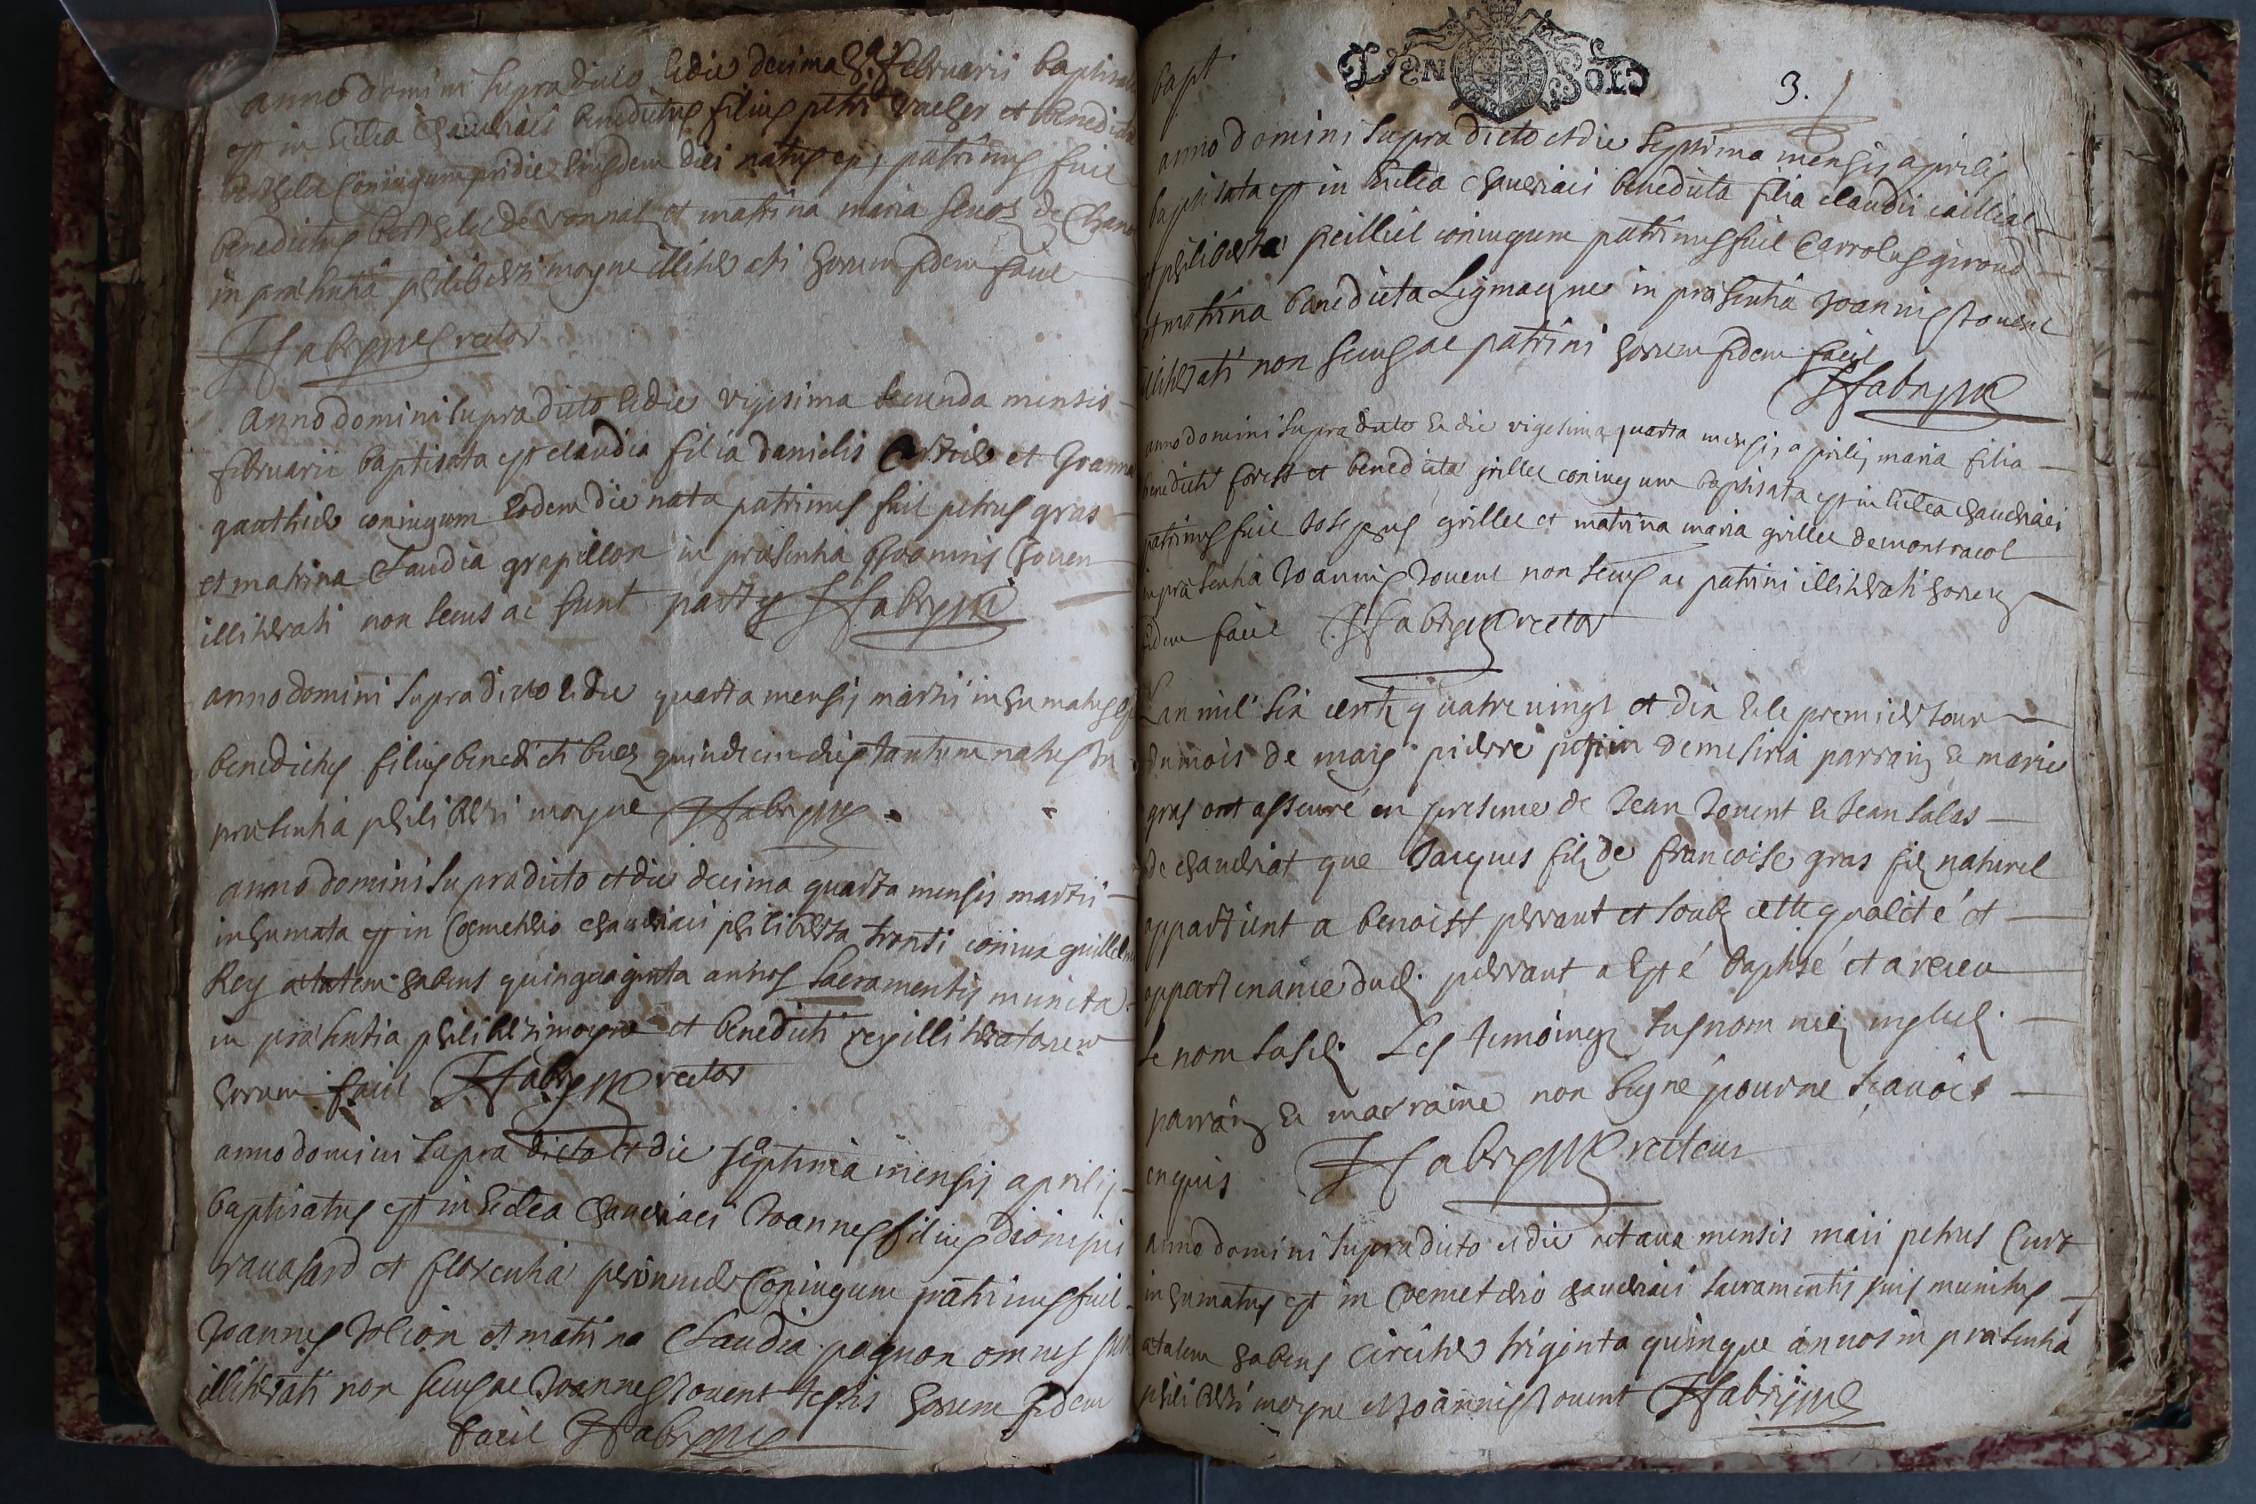 anno domini supradicto & die decima 8.a februarii baptisatus
est in Ecclea Chaveriaci benedictus filius petri et benedicta
coniugum pridie eiusdem diei natus est, patrinus fuit
benedictus de vonnat et matrina maria de
in præsentia philiberti moyne illiterati horum fidem facit
rector
anno domini supradicto & die vigesima secunda mensis
februarii baptisata est claudia filia danielis et Joanna
gauthier coniugum Eodem die nata patrinus fuit petrus gras
et matrina Claudia grapillon in præsentia Joannis Jouen
illiterati non secus ac sunt partes
anno domini supradicto & die quarta mensis martii inhumatus est
benedictus filius benedicti buez quindecim dies tantum natus in
præsentia philiberti moyne
anno domini supradicto et die decima quarta mensis martii
inhumata est in Coemeterio chaveriaci philiberta coniux guillelmi
Rey ætatem habens quinquaginta annos sacramentis munita
in præsentia philiberti moyne et benedicti rey illiteratorum
horum facit rector
anno domini supra dicto et die septima mensis aprilis
baptisatus est in Ecclea Chaveriaci Joannes filius dionisii
ravasard et florentia peronnier Coniugum patrinus fuit
Joannes et matrina Claudia pagnon omnes sunt
illiterati non secus ac Joannes Jouent testis horum fidem
facit
bapt.
DEN SOLS
3.
anno domini supra dicto et die septima mensis aprilis
baptisata est in Ecclea chaveriaci benedicta filia claudii
et philiberta coniugum patrinus fuit Carrolus giroud
et matrina benedicta in præsentia Joannis Jouent
illiterati non secus ac patrini horum fidem facit
anno domini supra dicto & die vigesima quarta mensis aprilis maria filia
benedicti forest et benedicta grillet coniugum baptisata est in Ecclea chaveriaci
patrinus fuit Josephus grillet et matrina maria grillet de montracol
in præsentia Joannis Jouent non secus ac patrini illiterati horum
fidem facit rector
Lan mil six cents quatre vingt et dix & le premier Jour
du mois de mays pierre de mesiria parrain & marie
gras ont asseuré en presence de Jean Jouent & Jean salas
de chaveriat que Jacques fils de francoise gras fils naturel
appartient a benoist perrant et soubs cette qualité et
appartenance dud. perrant a Esté baptisé et a receu
le nom susd. Les temoings susnommés
parrain & marraine non signé pour ne scavoir
enquis recteur
anno domini supradicto & die octava mensis maii petrus Curt
inhumatus est in Coemeterio chaveriaci sacramentis suis munitus
ætatem habens circiter triginta quinque annos in præsentia
philiberti moyne et Joannis Jouent